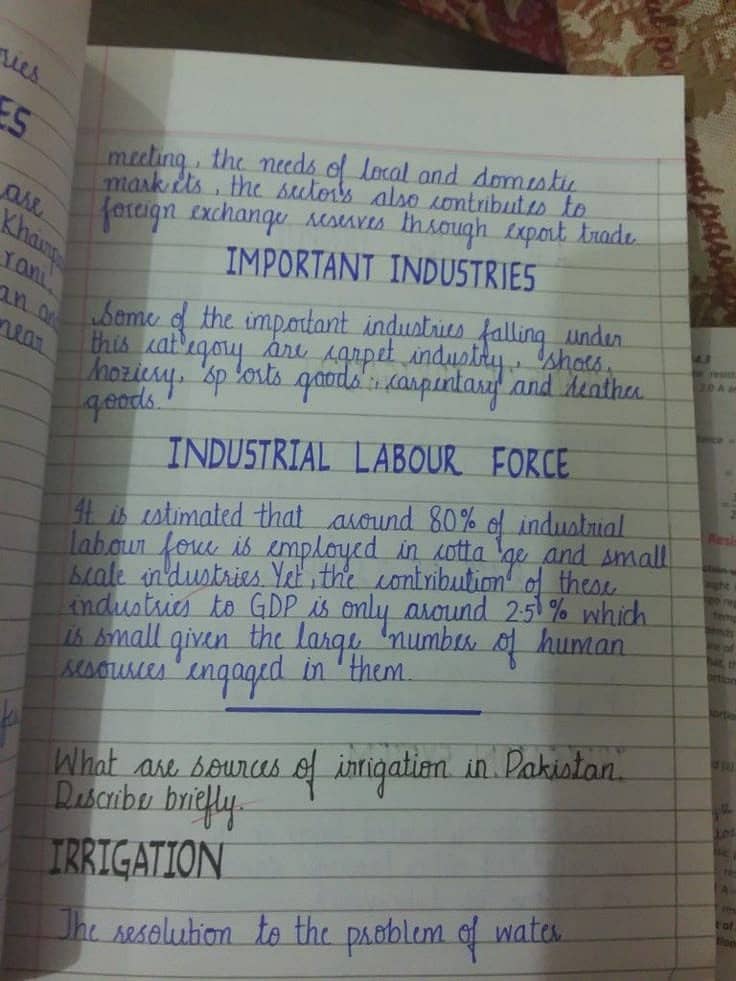 ries
ES
are
Khairp
rani
an an
near
meeting, the needs of local and domestic
markets, the sectors also contributes to
foreign exchange reserves through export trade
IMPORTANT INDUSTRIES
Some of the important industries falling under
this category are carpet industry, shoes,
hoziery, sports goods, carpentary and leather
goods.
INDUSTRIAL LABOUR FORCE
It is estimated that around 80% of industrial
labour force is employed in cottage and small
scale industries. Yet, the contribution of these
industries to GDP is only around 2.5% which
is small given the large number of human
resources engaged in them.
What are sources of irrigation in Pakistan.
Describe briefly.
IRRIGATION
The resolution to the problem of water